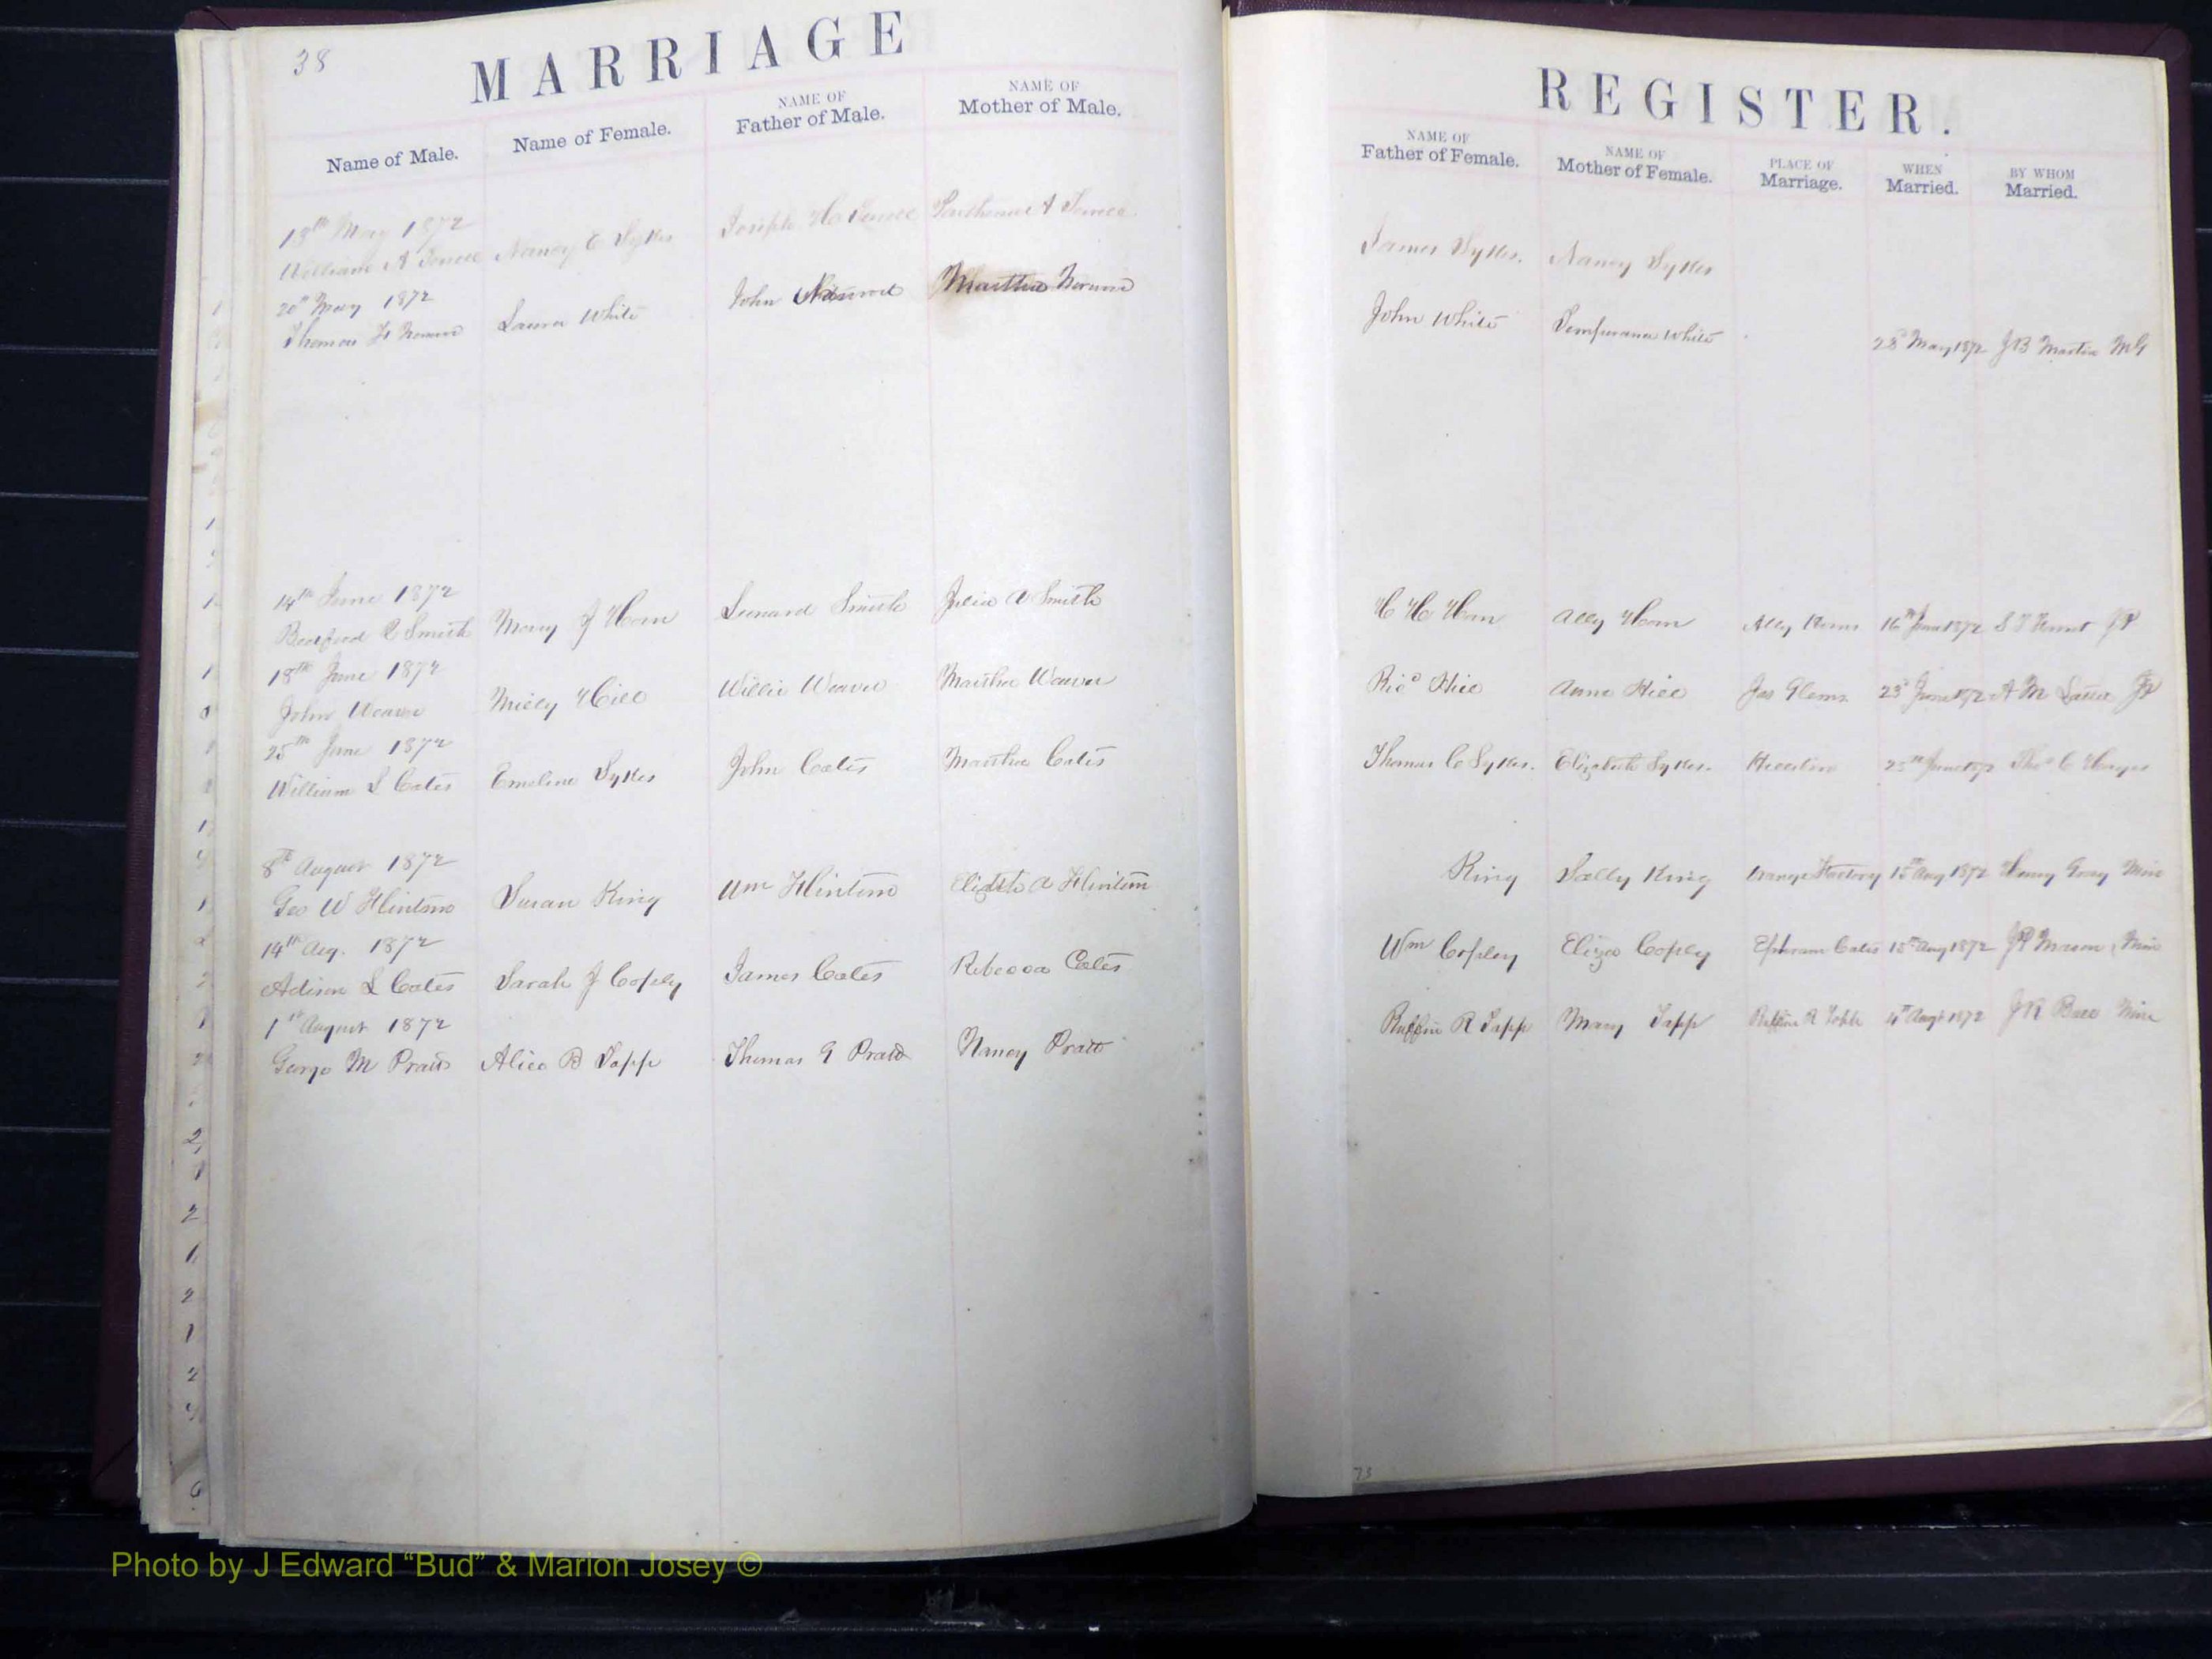 38
MARRIAGE
Name of Male. Name of Female. NAME OF Father of Male. NAME OF Mother of Male.
May 1872
William A Nancy E Sykes Joseph
20th May 1872
Thomas Laura White John Martha
14th June 1872
Smith Mary J Horn Leonard Smith Julia A Smith
18th June 1872
John Weaver Milly Hill Willie Weaver Martha Weaver
25th June 1872
William L Cates Emeline Sykes John Cates Martha Cates
8th August 1872
Geo W Flintom Susan King Wm Flintom A Flintom
14th Aug. 1872
Adison L Cates Sarah J Copley James Cates Rebecca Cates
1st August 1872
George M Pratt Alice B Tapp Thomas G Pratt Nancy Pratt
REGISTER.
NAME OF Father of Female. NAME OF Mother of Female. PLACE OF Marriage. WHEN Married. BY WHOM Married.
James Sykes. Nancy Sykes
John White White 28th May 1872 J B Martin MG
H H Horn Ally Horn Ally Horn 16th June 1872 JP
Ricd Hill Anna Hill Jas 23d June 1872 A M JP
Thomas C Sykes. Elizabeth Sykes. 25th June 1872 Thos C
King Sally King Orange Factory 15th Aug 1872 Henry Gray Mins
Wm Copley Eliza Copley Ephraim Cates 15th Aug 1872 J P Mason Mins
Ruffin R Tapp Mary Tapp Ruffin R Tapp 4th Augt 1872 J R Ball Mins
73
Photo by J Edward “Bud” & Marion Josey ©